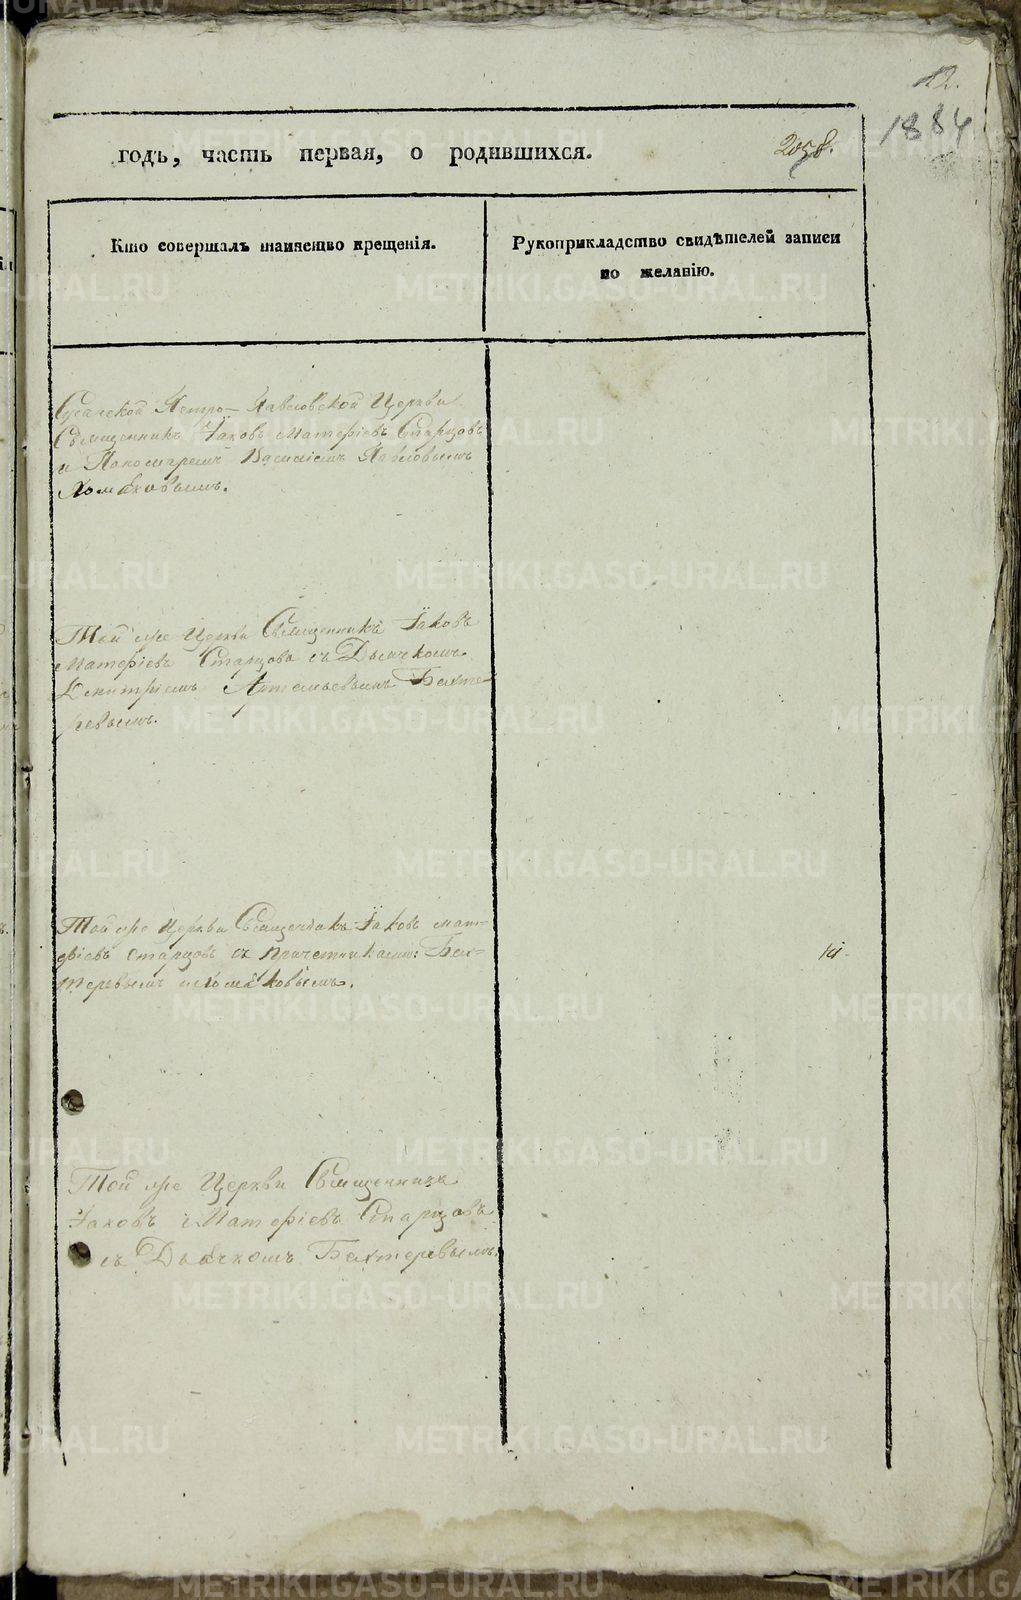 12.
1884
годъ, часть первая, о родившихся.
2058.
Кто совершалъ таинство крещенія.
Рукоприкладство свидѣтелей записи
по желанію.
Петро-Павловской Церкви
Священникъ Іаковъ Матѳіевъ Старцовъ
и Пономаремъ Василіемъ
Хомяковымъ.
Той же Церкви Священникъ Іаковъ
Матѳіевъ Старцовъ съ Дьячкомъ
Димитріемъ Бахте-
ревымъ.
Той же Церкви Священникъ Іаковъ Мат-
ѳіевъ Старцовъ съ причетниками: Бах-
теревымъ и Хомяковымъ.
Той же Церкви Священникъ
Іаковъ Матѳіевъ Старцовъ
съ Дьячкомъ Бахтеревымъ
METRIKI.GASO-URAL.RU